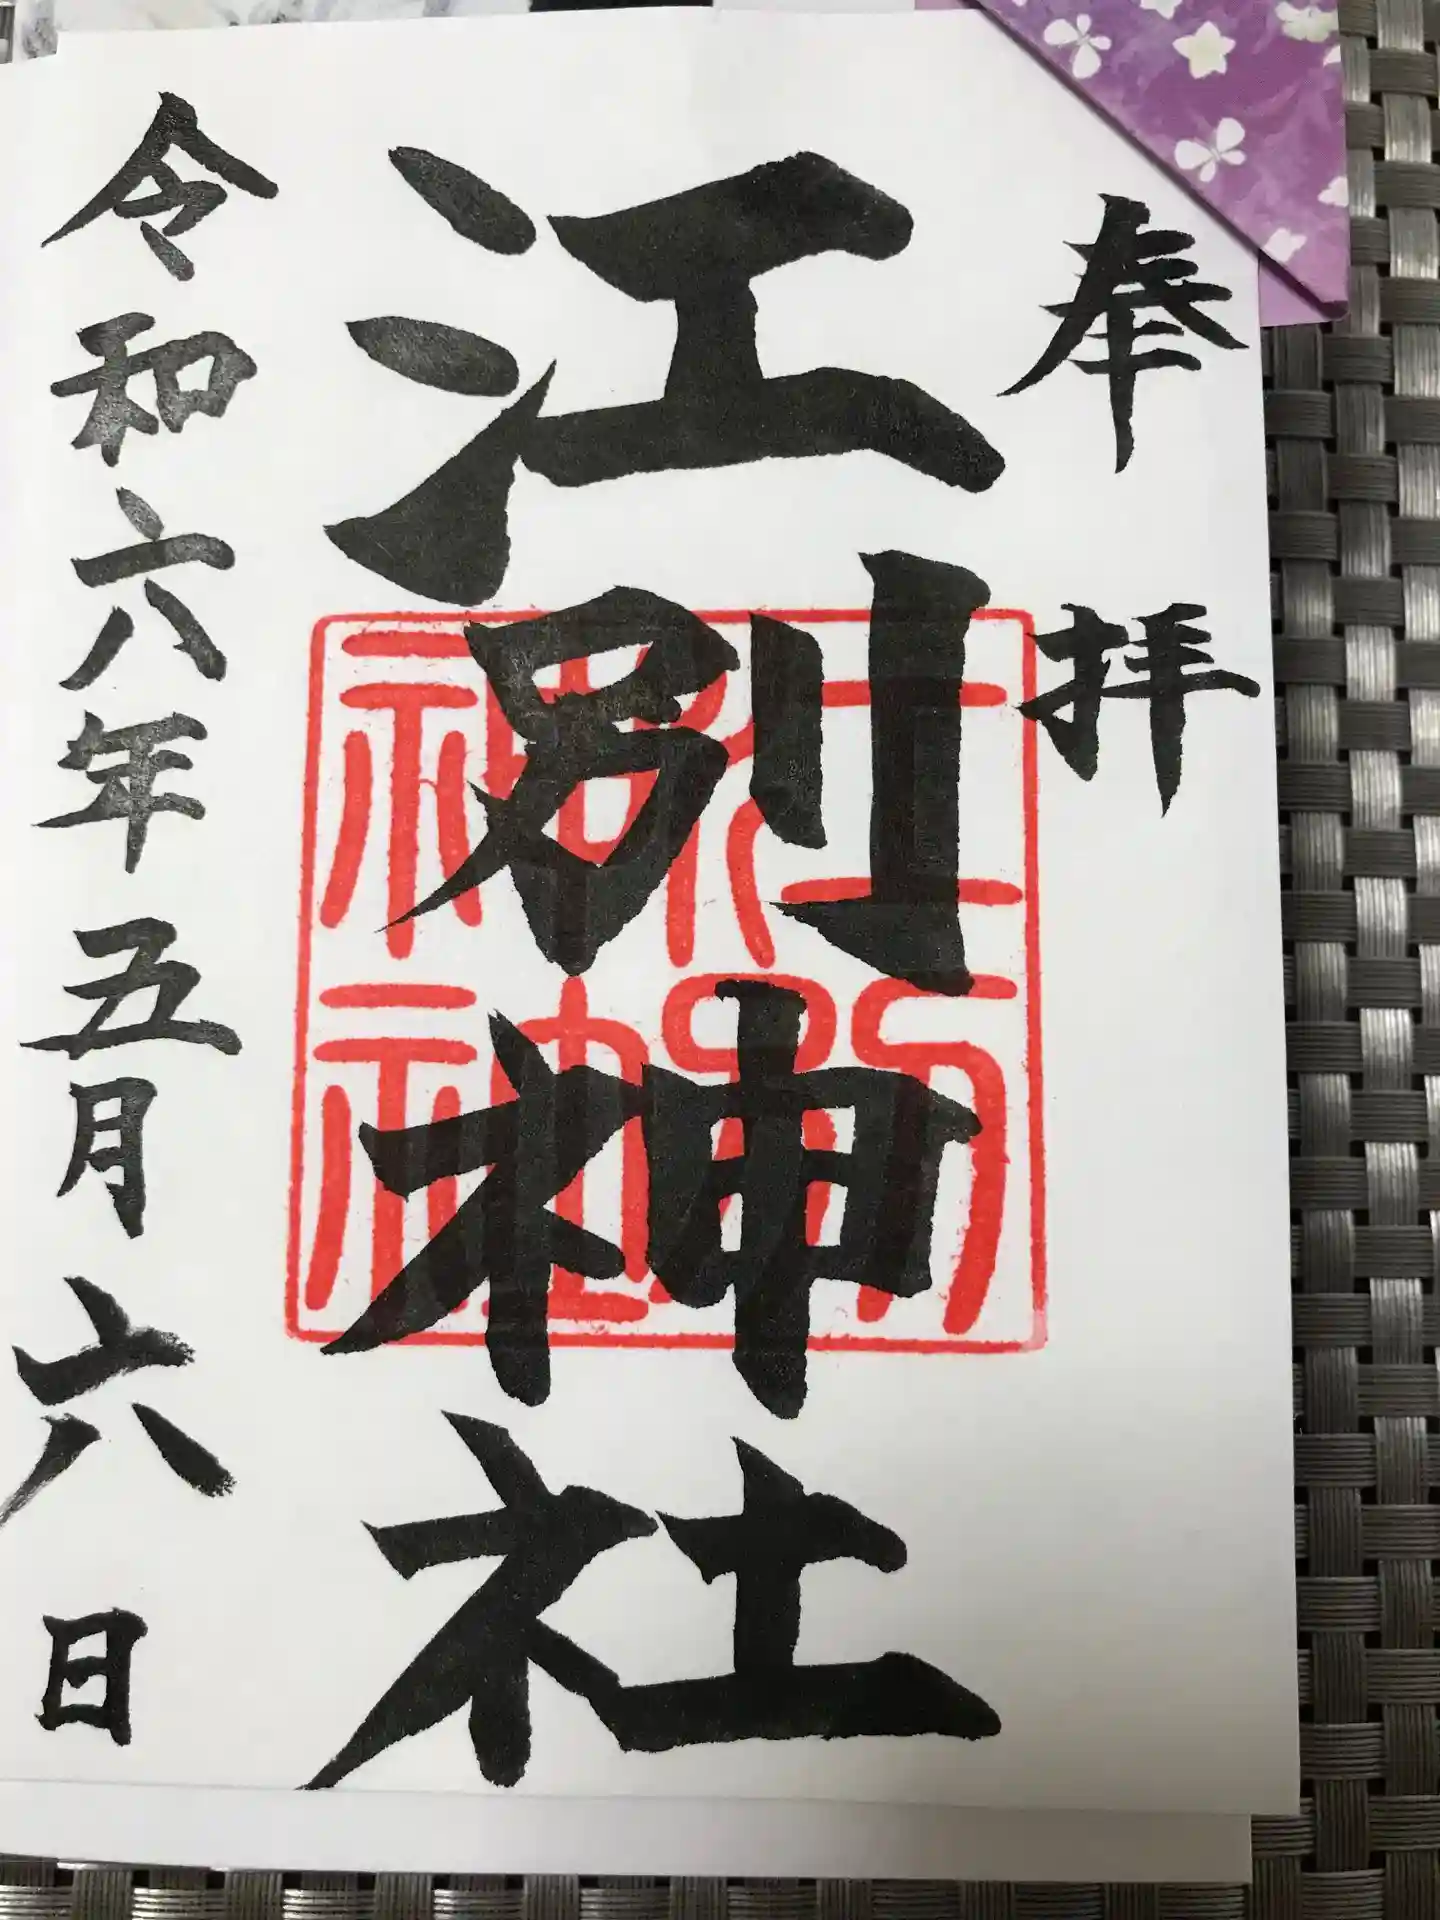 奉拝
江別神社
江別神社
令和六年五月六日